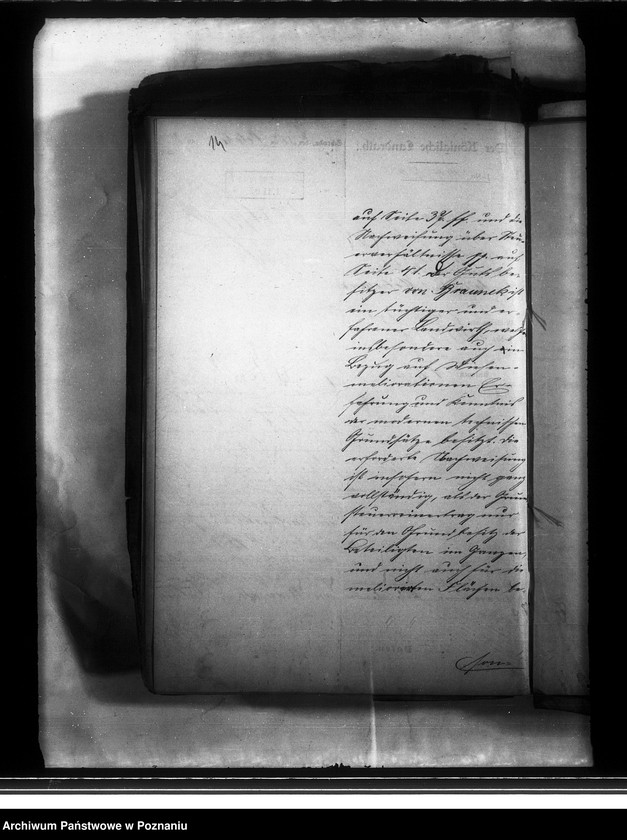 14
auf Seite 37 ff und die
Nachweisung über Steu-
erverhältnisse pp. auf
Seite 41. Der Gutsbe-
sitzer von Brauneck ist
ein tüchtiger und er-
fahrener Landwirth, welcher
insbesondere auch in
Bezug auf Wiesen-
meliorationen Er-
fahrung und Kenntnis
der modernen technischen
Grundsätze besitzt. Die
erforderte Nachweisung
ist insofern nicht ganz
vollständig, als der Grund
steuerreinertrag nur
für den Grundbesitz der
Beteiligten im Ganzen,
und nicht auch für die
meliorirten Flächen be-
Archiwum Państwowe w Poznaniu